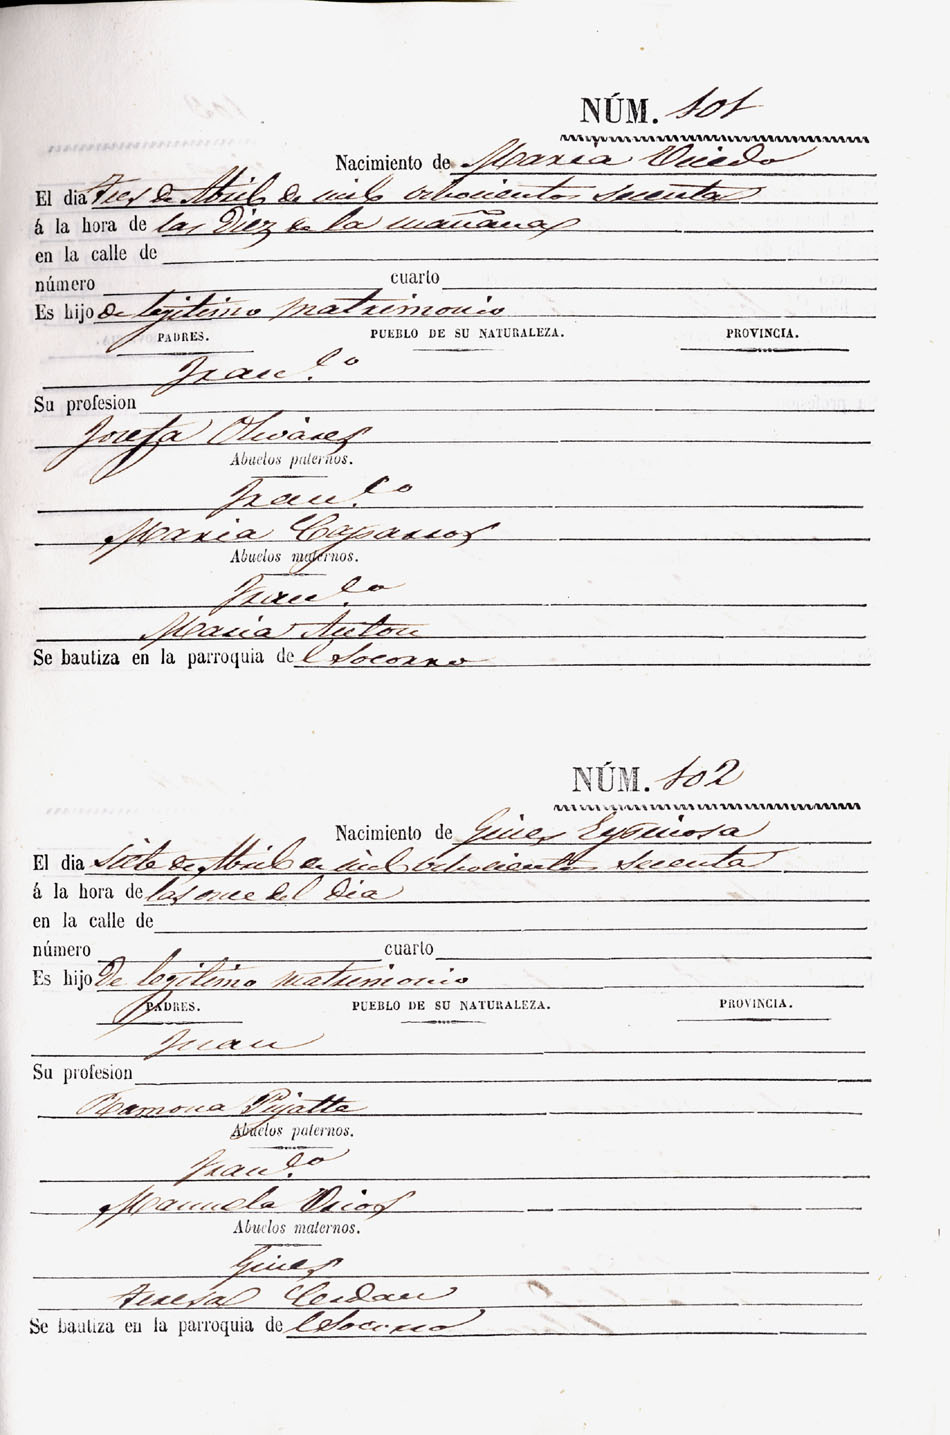 NÚM. 101
Nacimiento de Maria Oviedo
El dia Tres de Abril de mil ochocientos secenta
á la hora de las Diez de la mañana
en la calle de
número cuarto
Es hijo de legitimo matrimonio
PADRES. PUEBLO DE SU NATURALEZA. PROVINCIA.
Franco
Su profesion
Josefa Olivares
Abuelos paternos.
Franco
Maria Caparros
Abuelos maternos.
Franco
Maria Anton
Se bautiza en la parroquia de l Socorro
NÚM. 102
Nacimiento de Gines Espinosa
El dia siete de Abril de mil ochocientos secenta
á la hora de las once del Dia
en la calle de
número cuarto
Es hijo De legitimo matrimonio
PADRES. PUEBLO DE SU NATURALEZA. PROVINCIA.
Juan
Su profesion
Ramona Pujalte
Abuelos paternos.
Franco
Manuela
Abuelos maternos.
Gines
Teresa Cerdan
Se bautiza en la parroquia de l Socorro